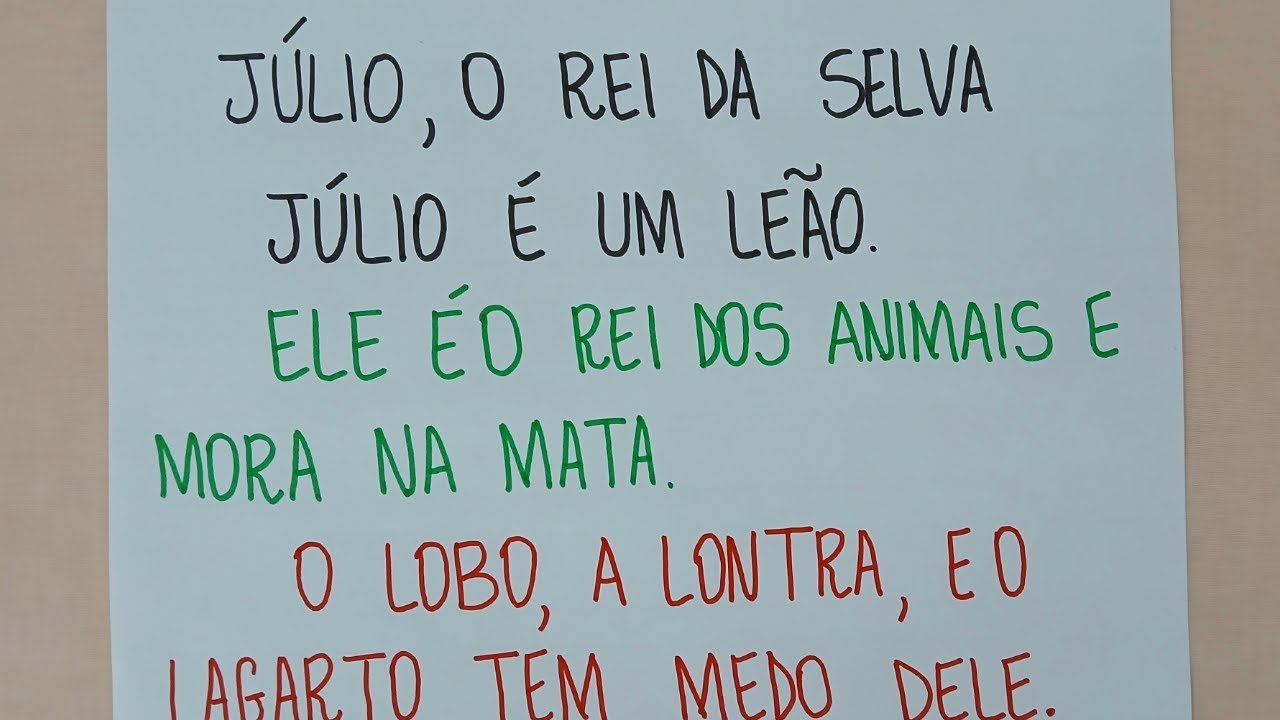 JÚLIO, O REI DA SELVA
JÚLIO É UM LEÃO.
ELE É O REI DOS ANIMAIS E
MORA NA MATA.
O LOBO, A LONTRA, E O
LAGARTO TEM MEDO DELE.